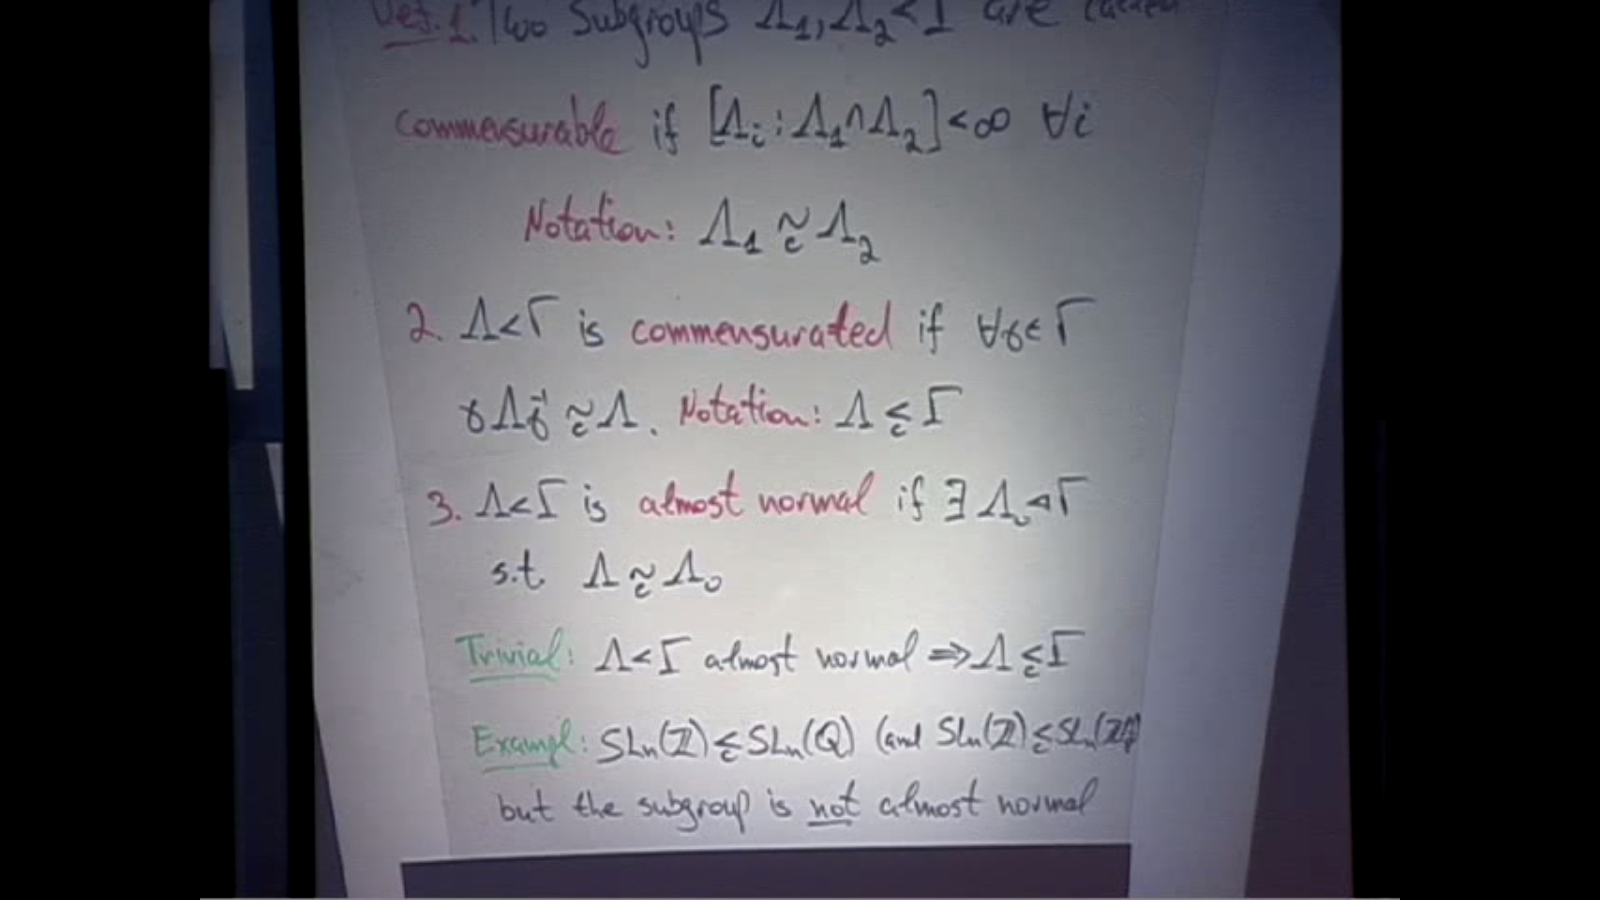 Def. 1. Two subgroups Λ₁, Λ₂ < Γ are called
commensurable if [Λᵢ : Λ₁∩Λ₂] < ∞ ∀i
Notation: Λ₁ ~c Λ₂
2. Λ<Γ is commensurated if ∀γ∈Γ
γΛγ⁻¹ ~c Λ. Notation: Λ ≤c Γ
3. Λ<Γ is almost normal if ∃ Λ₀ ◁ Γ
s.t. Λ ~c Λ₀
Trivial: Λ<Γ almost normal ⇒ Λ ≤c Γ
Exampl: SLn(ℤ) ≤c SLn(Q) (and SLn(ℤ) ≤c SLn(ℤ
but the subgroup is not almost normal